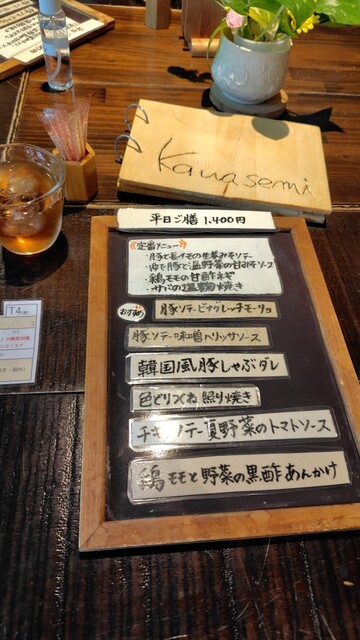 Kawasemi
平日ご膳 1,400円
定番メニュー
・豚と長イモの生姜みそソテー
・ゆで豚と温野菜の甘みそソース
・鶏モモの甘酢ネギ
・サバの塩麹焼き
おすすめ
豚ソテービナグレッチモーリョ
豚ソテー味噌ハリッサソース
韓国風豚しゃぶダレ
色どりつくね照り焼き
チキンソテー夏野菜のトマトソース
鶏モモと野菜の黒酢あんかけ
T4